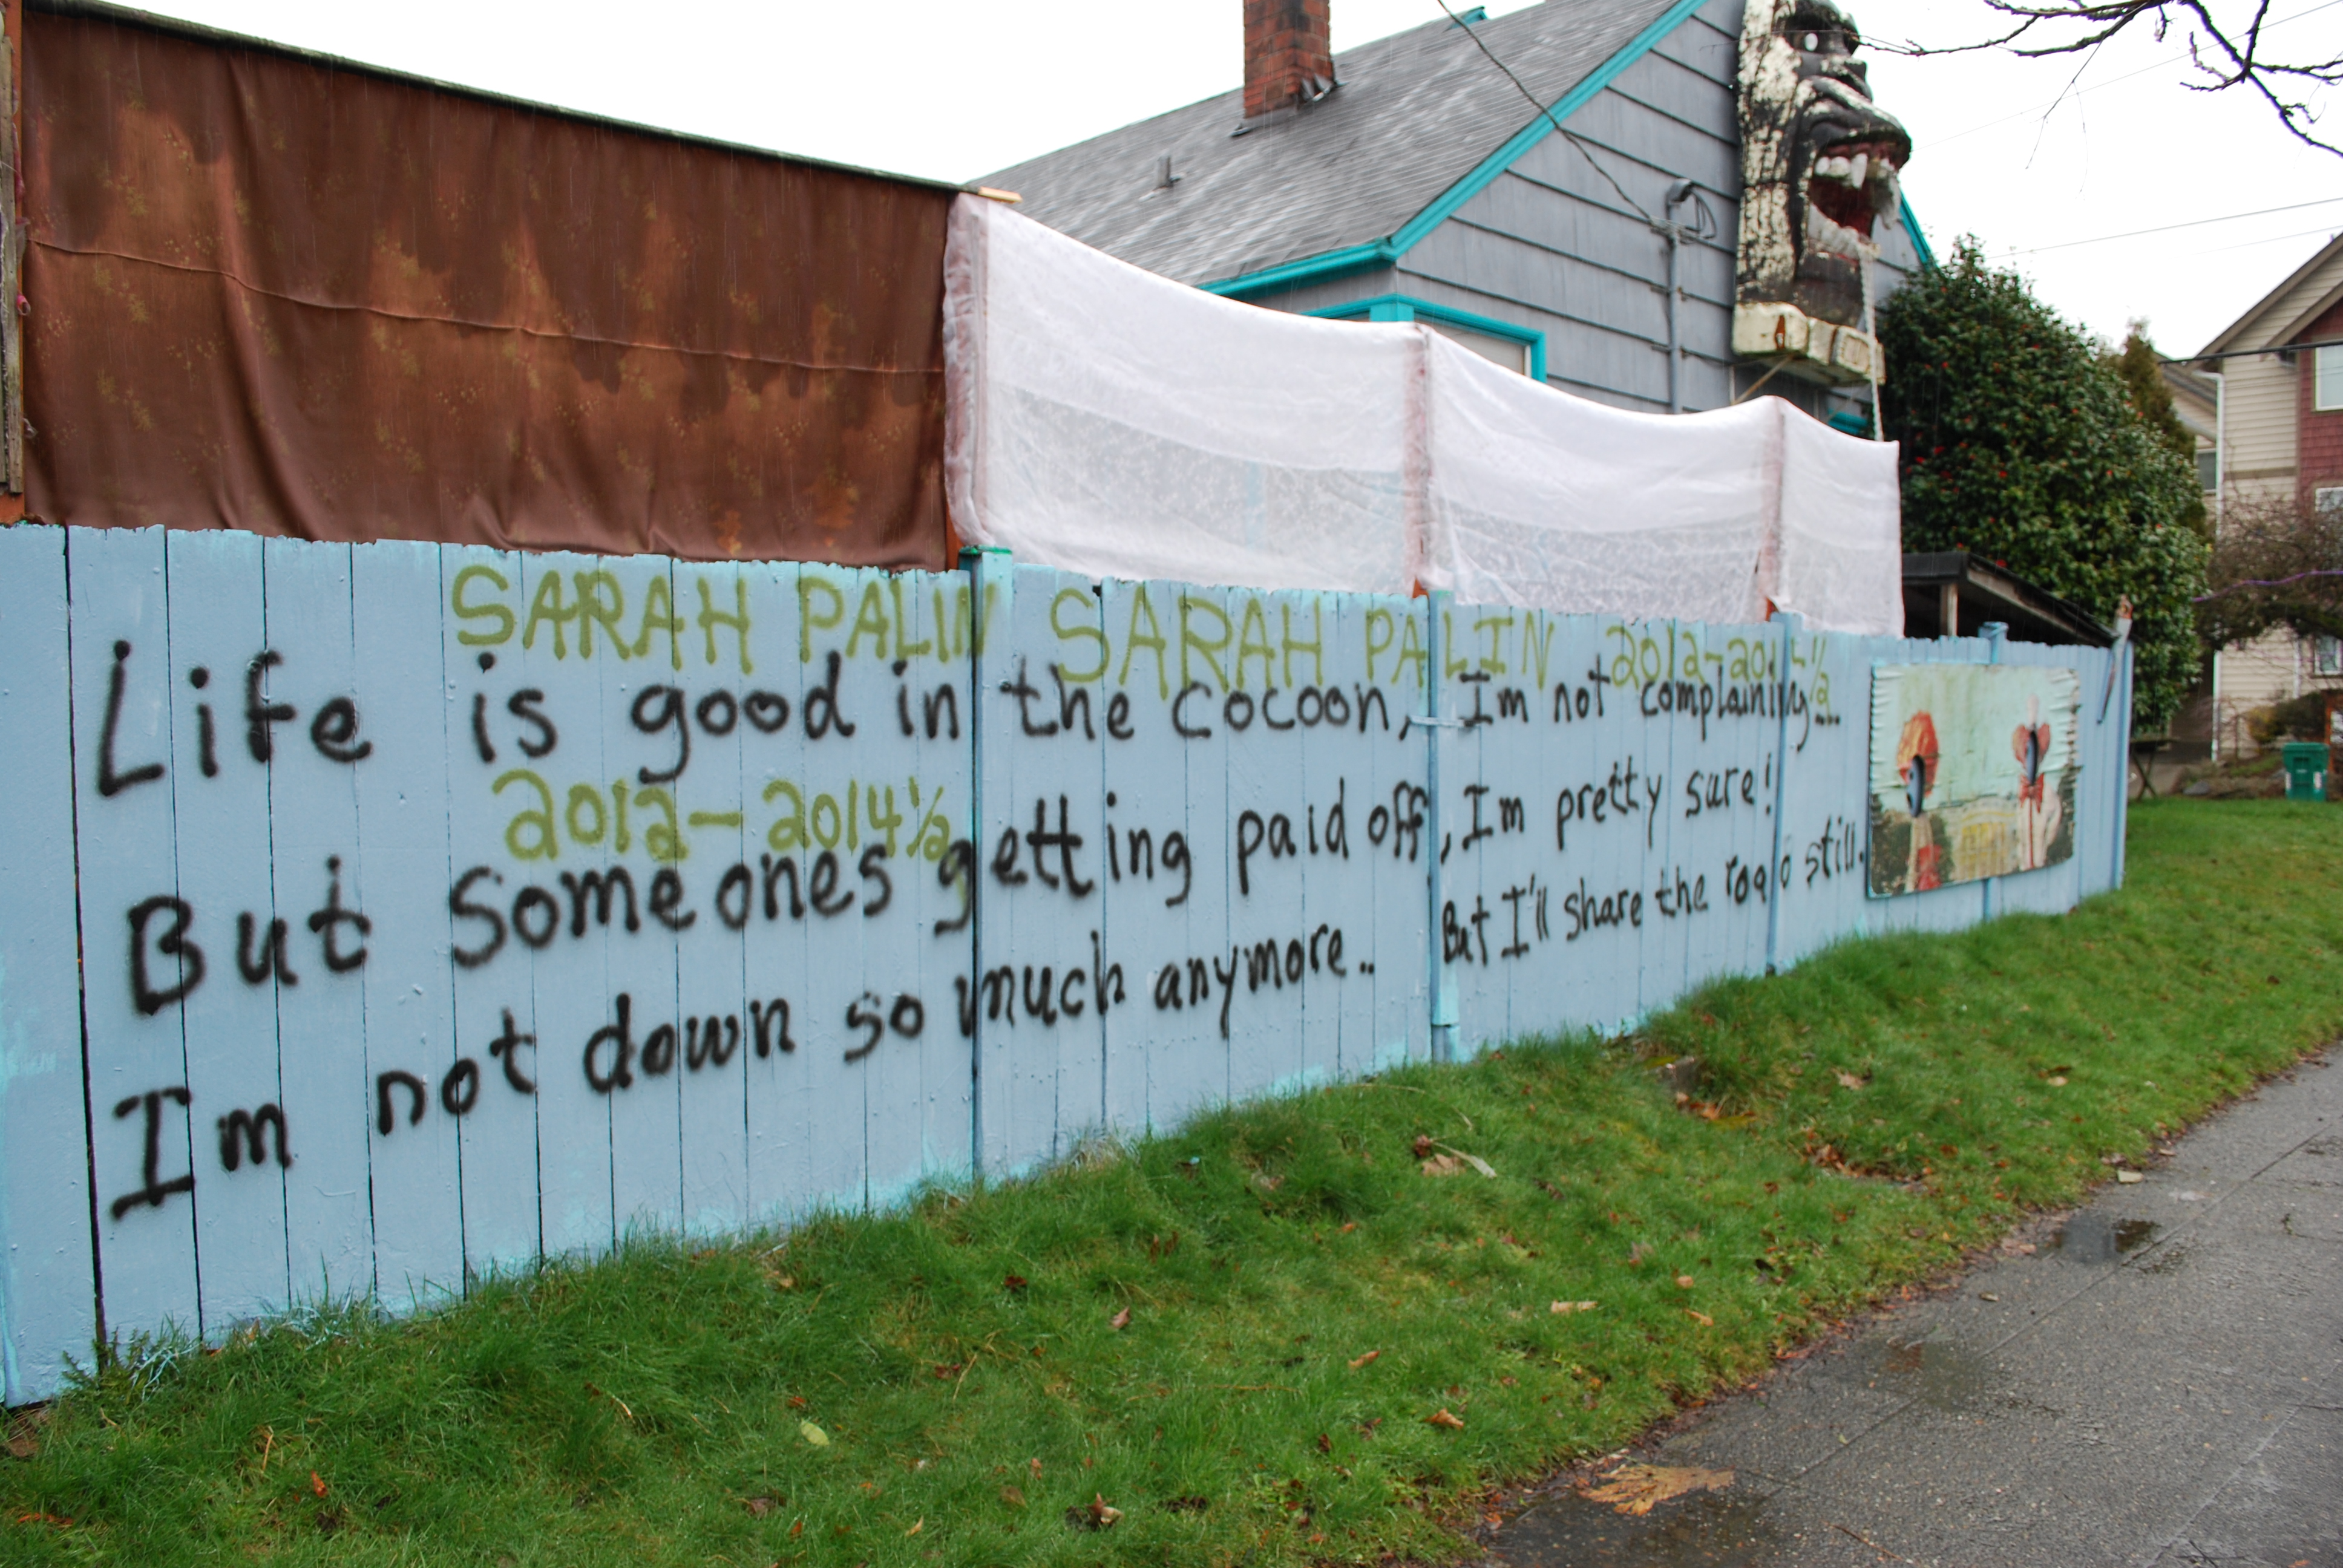 SARAH PALIN SARAH PALIN 2012-2014½
Life is good in the cocoon, Im not complaining...
2012-2014½
But Someones getting paid off, Im pretty sure!
Im not down so much anymore.. But I'll share the road still.